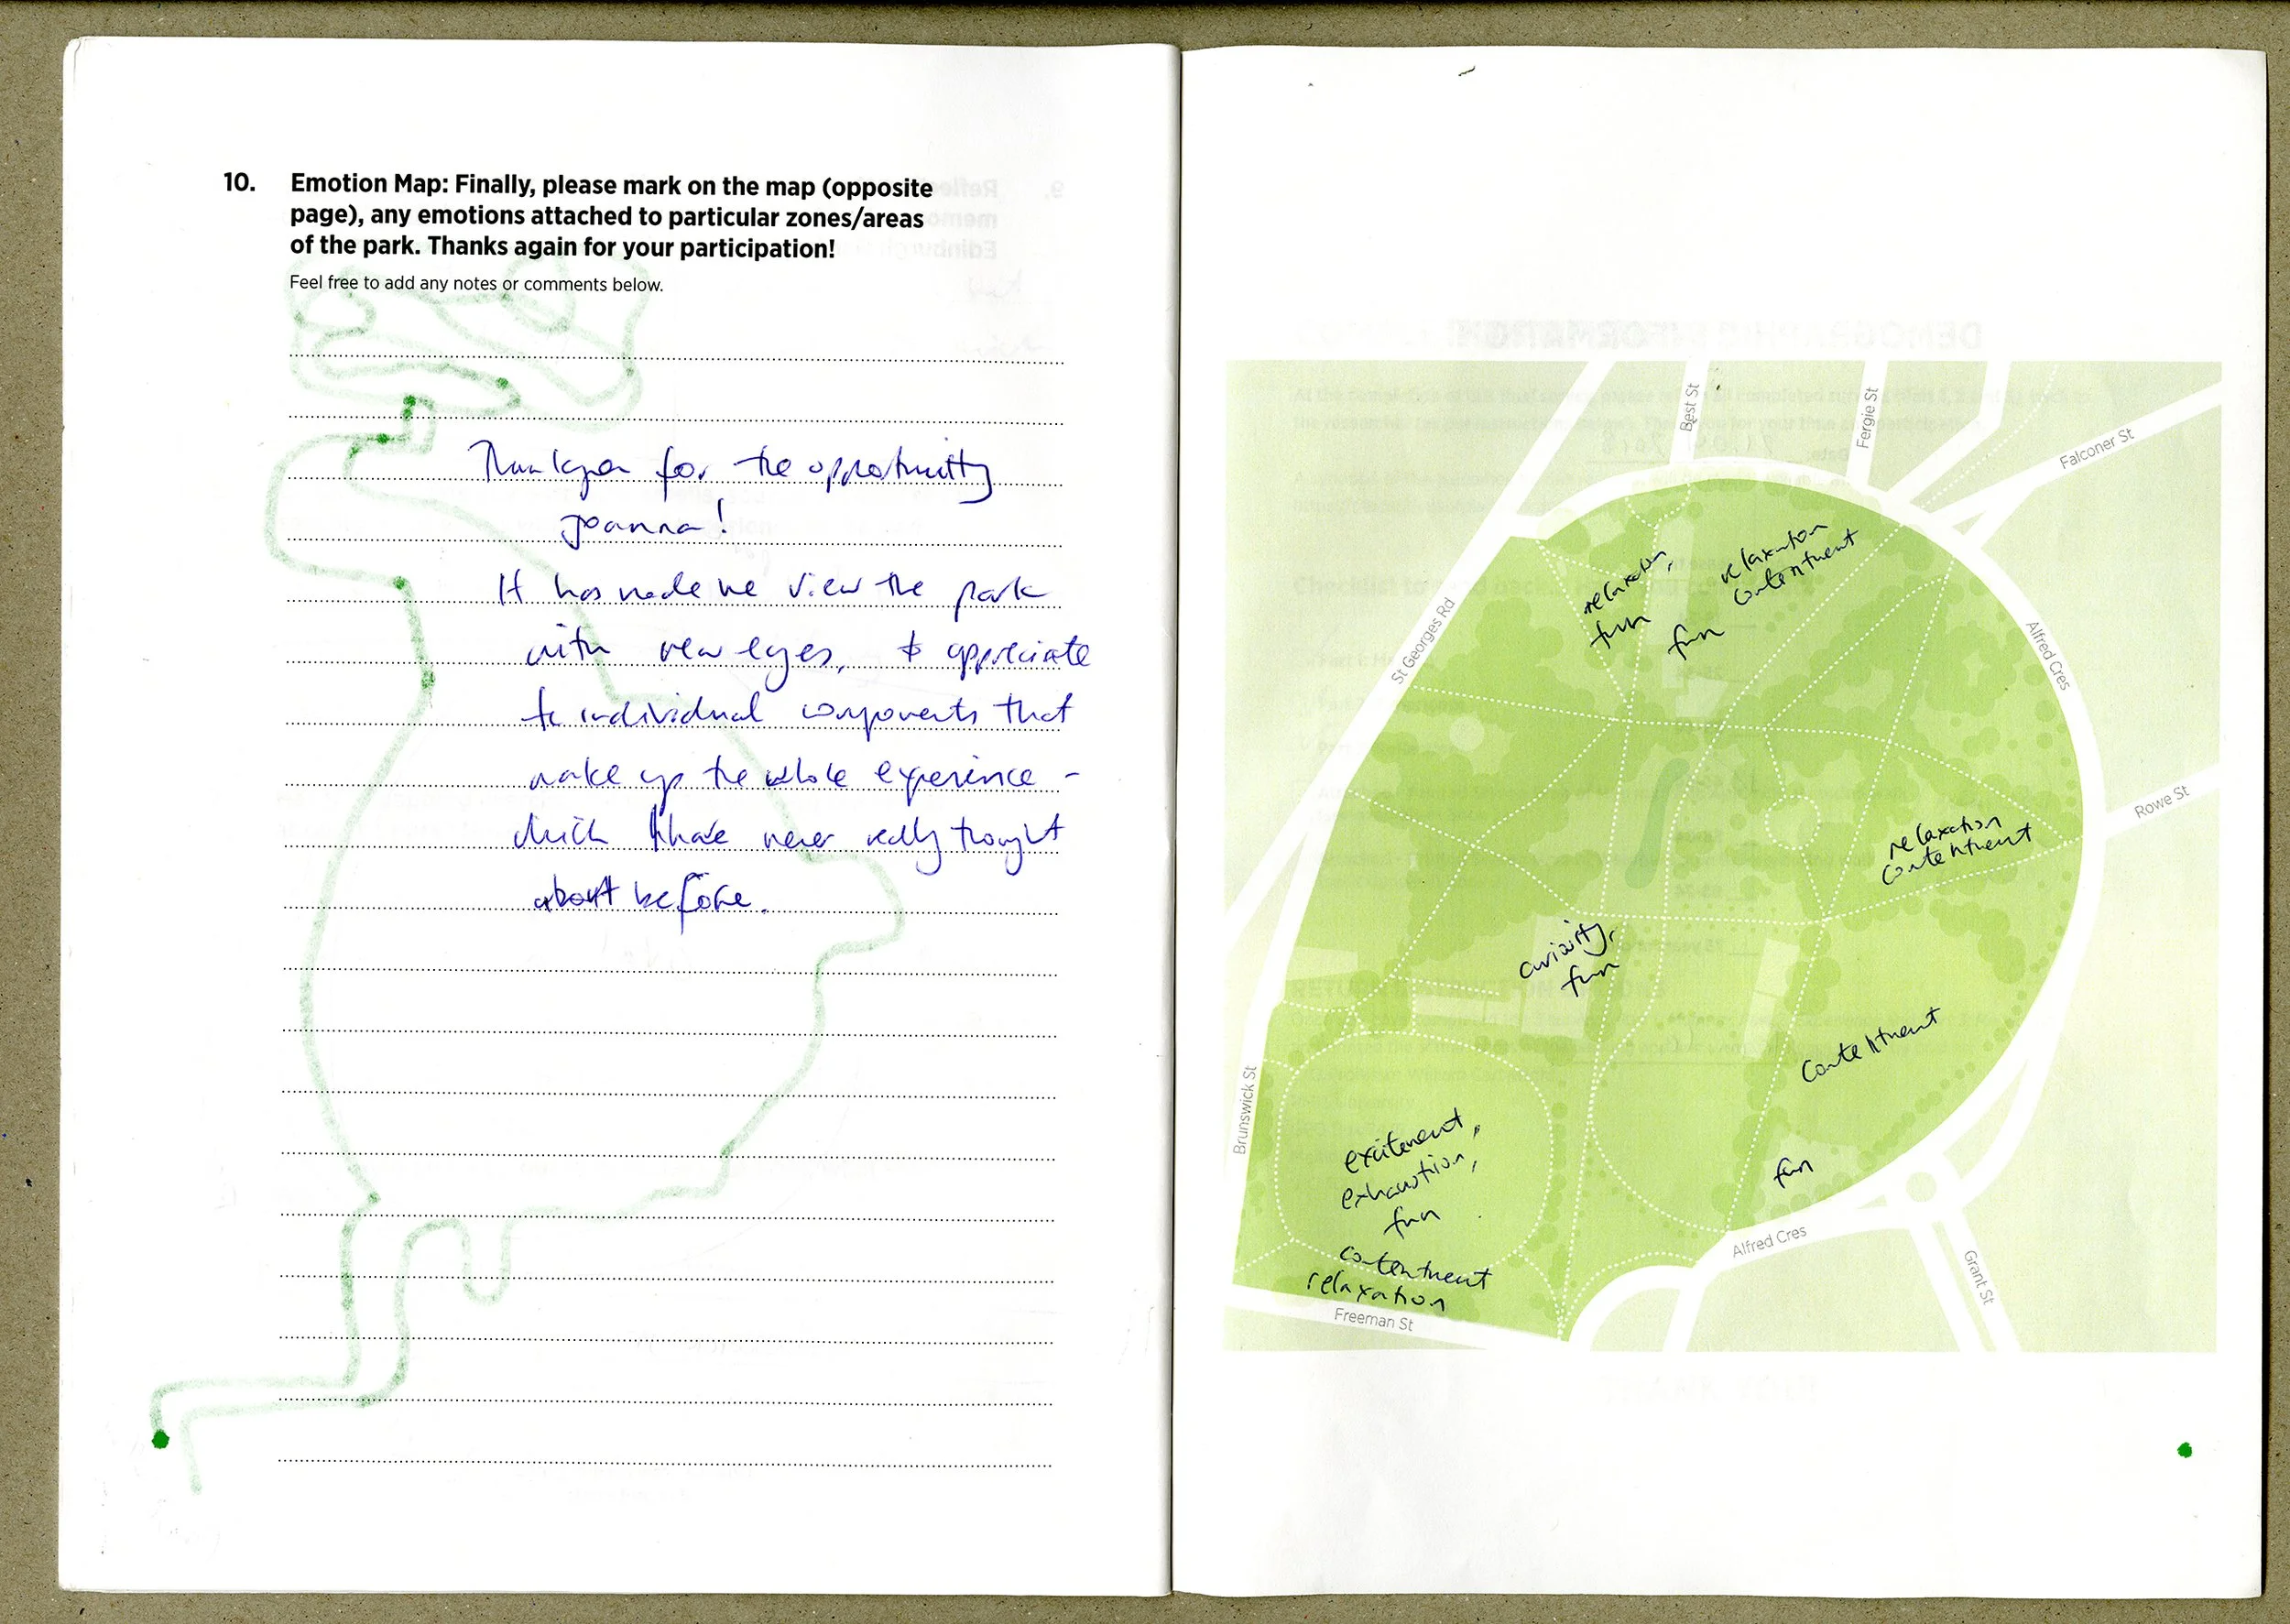 10. Emotion Map: Finally, please mark on the map (opposite
page), any emotions attached to particular zones/areas
of the park. Thanks again for your participation!
Feel free to add any notes or comments below.
Thankyou for the opportunity
Joanna!
It has made me view the park
with new eyes, & appreciate
individual components that
make up the whole experience -
which I have never really thought
about before.
Best St
Fergie St
Falconer St
St Georges Rd
Alfred Cres
relaxation,
fun
relaxation
contentment
fun
Rowe St
relaxation
contentment
curiosity,
fun
contentment
Brunswick St
excitement,
exhaustion,
fun
fun
contentment
relaxation
Alfred Cres
Grant St
Freeman St